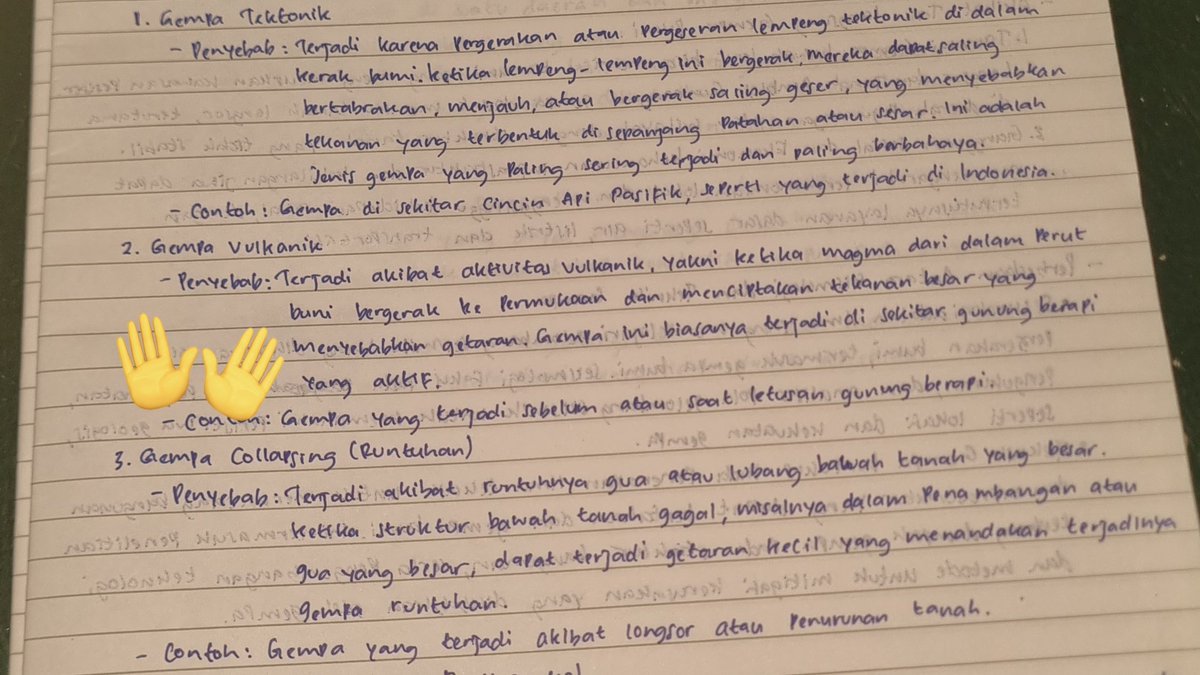 1. Gempa Tektonik
- Penyebab : Terjadi karena Pergerakan atau Pergeseran lempeng tektonik di dalam
kerak bumi. ketika lempeng-lempeng ini bergerak mereka dapat saling
bertabrakan, menjauh, atau bergerak saling geser, yang menyebabkan
tekanan yang terbentuk di sepanjang Patahan atau sesar. Ini adalah
Jenis gempa yang Paling sering terjadi dan paling berbahaya.
- Contoh : Gempa di sekitar Cincin Api Pasifik, seperti yang terjadi di Indonesia.
2. Gempa Vulkanik
- Penyebab : Terjadi akibat aktivitas vulkanik, yakni ketika magma dari dalam Perut
bumi bergerak ke Permukaan dan menciptakan tekanan besar yang
menyebabkan getaran. Gempa ini biasanya terjadi di sekitar gunung berapi
yang aktif.
- Contoh : Gempa yang terjadi sebelum atau saat letusan gunung berapi.
3. Gempa Collapsing (Runtuhan)
- Penyebab : Terjadi akibat runtuhnya gua atau lubang bawah tanah yang besar.
ketika struktur bawah tanah gagal, misalnya dalam Penambangan atau
gua yang besar, dapat terjadi getaran kecil yang menandakan terjadinya
gempa runtuhan.
- Contoh : Gempa yang terjadi akibat longsor atau Penurunan tanah.